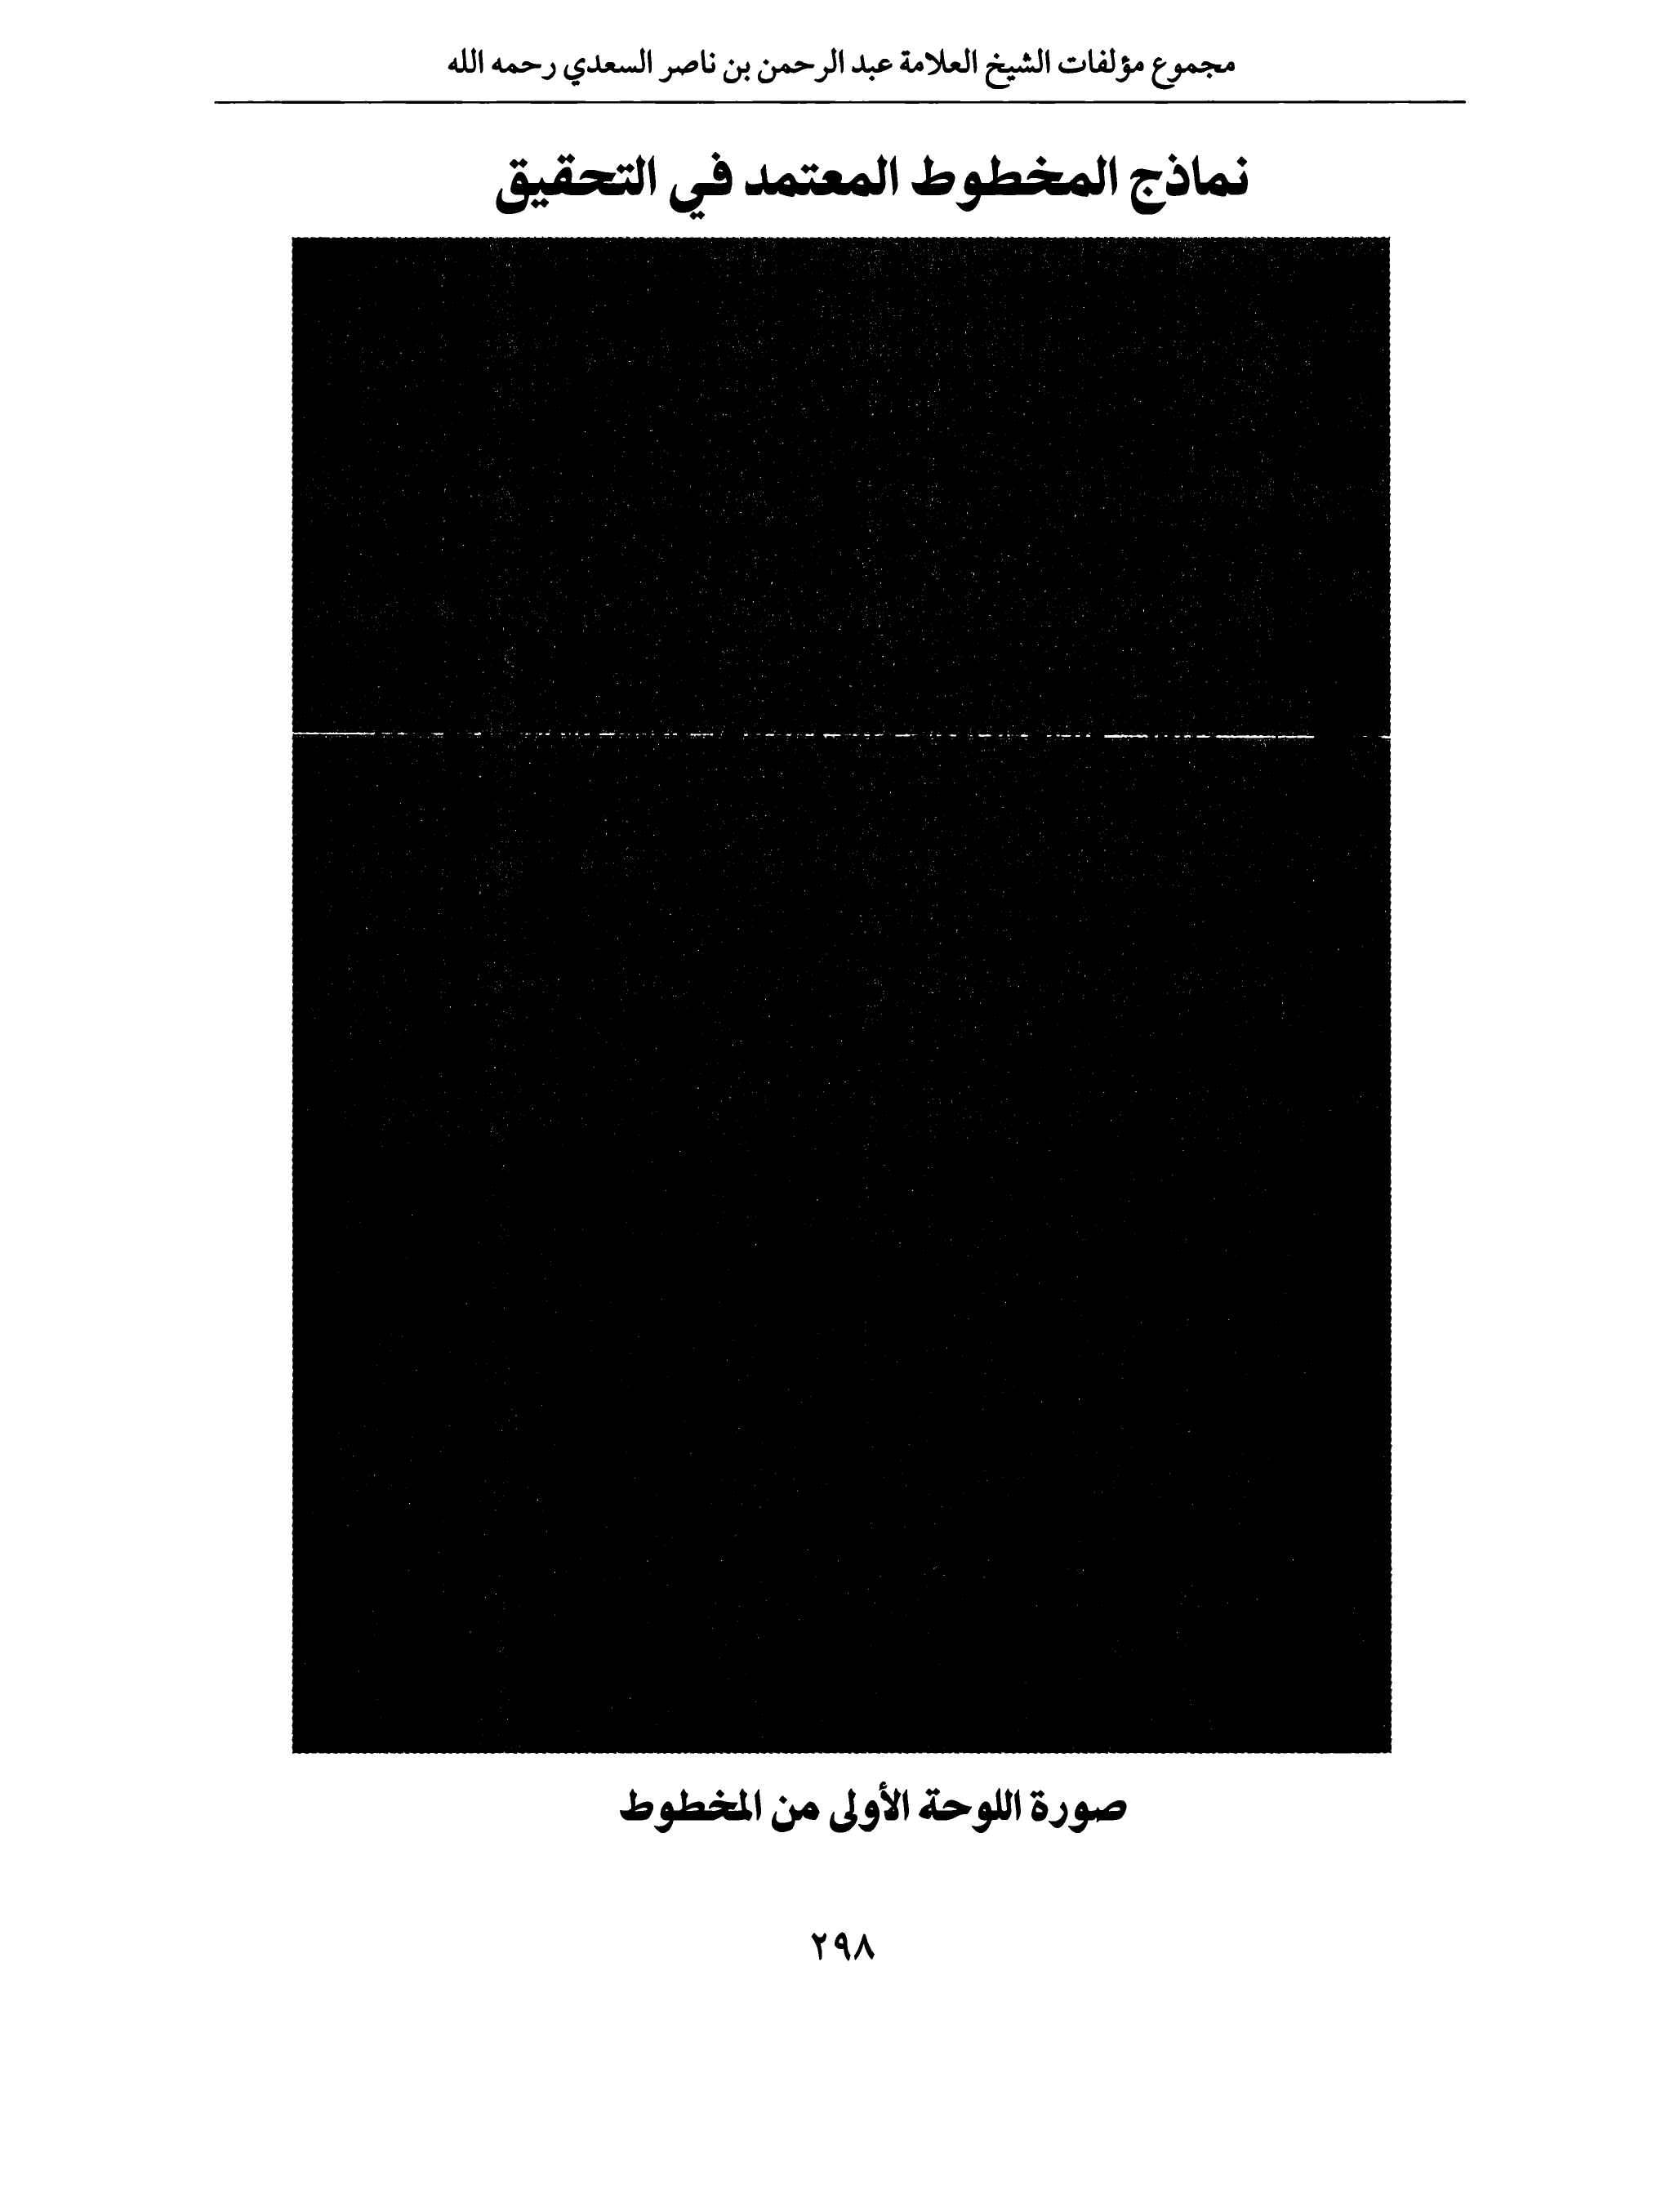 مجموع مؤلفات الشيخ العلامة عبد الرحمن بن ناصر السعدي رحمه الله
نماذج المخطوط المعتمد في التحقيق
صورة اللوحة الأولى من المخطوط
٢٩٨